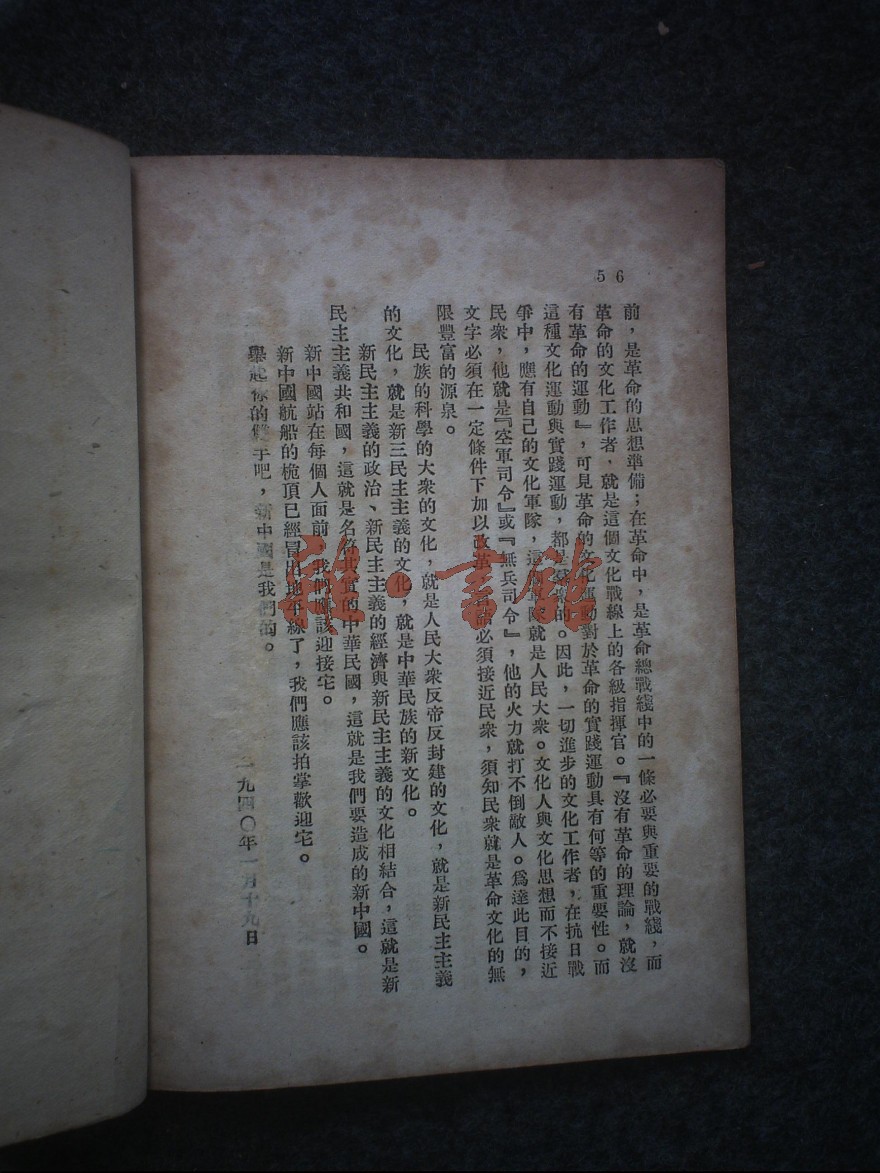 56
前，是革命的思想準備；在革命中，是革命總戰綫中的一條必要與重要的戰綫，而
革命的文化工作者，就是這個文化戰線上的各級指揮官。『沒有革命的理論，就沒
有革命的運動』，可見革命的文化運動對於革命的實踐運動具有何等的重要性。而
這種文化運動與實踐運動，都是的。因此，一切進步的文化工作者，在抗日戰
爭中，應有自己的文化軍隊，這隊就是人民大衆。文化人與文化思想而不接近
民衆，他就是『空軍司令』或『無兵司令』，他的火力就打不倒敵人。爲達此目的，
文字必須在一定條件下加以改革，必須接近民衆，須知民衆就是革命文化的無
限豐富的源泉。
民族的科學的大衆的文化，就是人民大衆反帝反封建的文化，就是新民主主義
的文化，就是新三民主主義的文化，就是中華民族的新文化。
新民主主義的政治、新民主主義的經濟與新民主主義的文化相結合，這就是新
民主主義共和國，這就是名符其實的中華民國，這就是我們要造成的新中國。
新中國站在每個人面前，我們應該迎接它。
新中國航船的桅頂已經冒出地平線了，我們應該拍掌歡迎它。
舉起你的雙手吧，新中國是我們的。
一九四〇年一月十九日
雜·書館